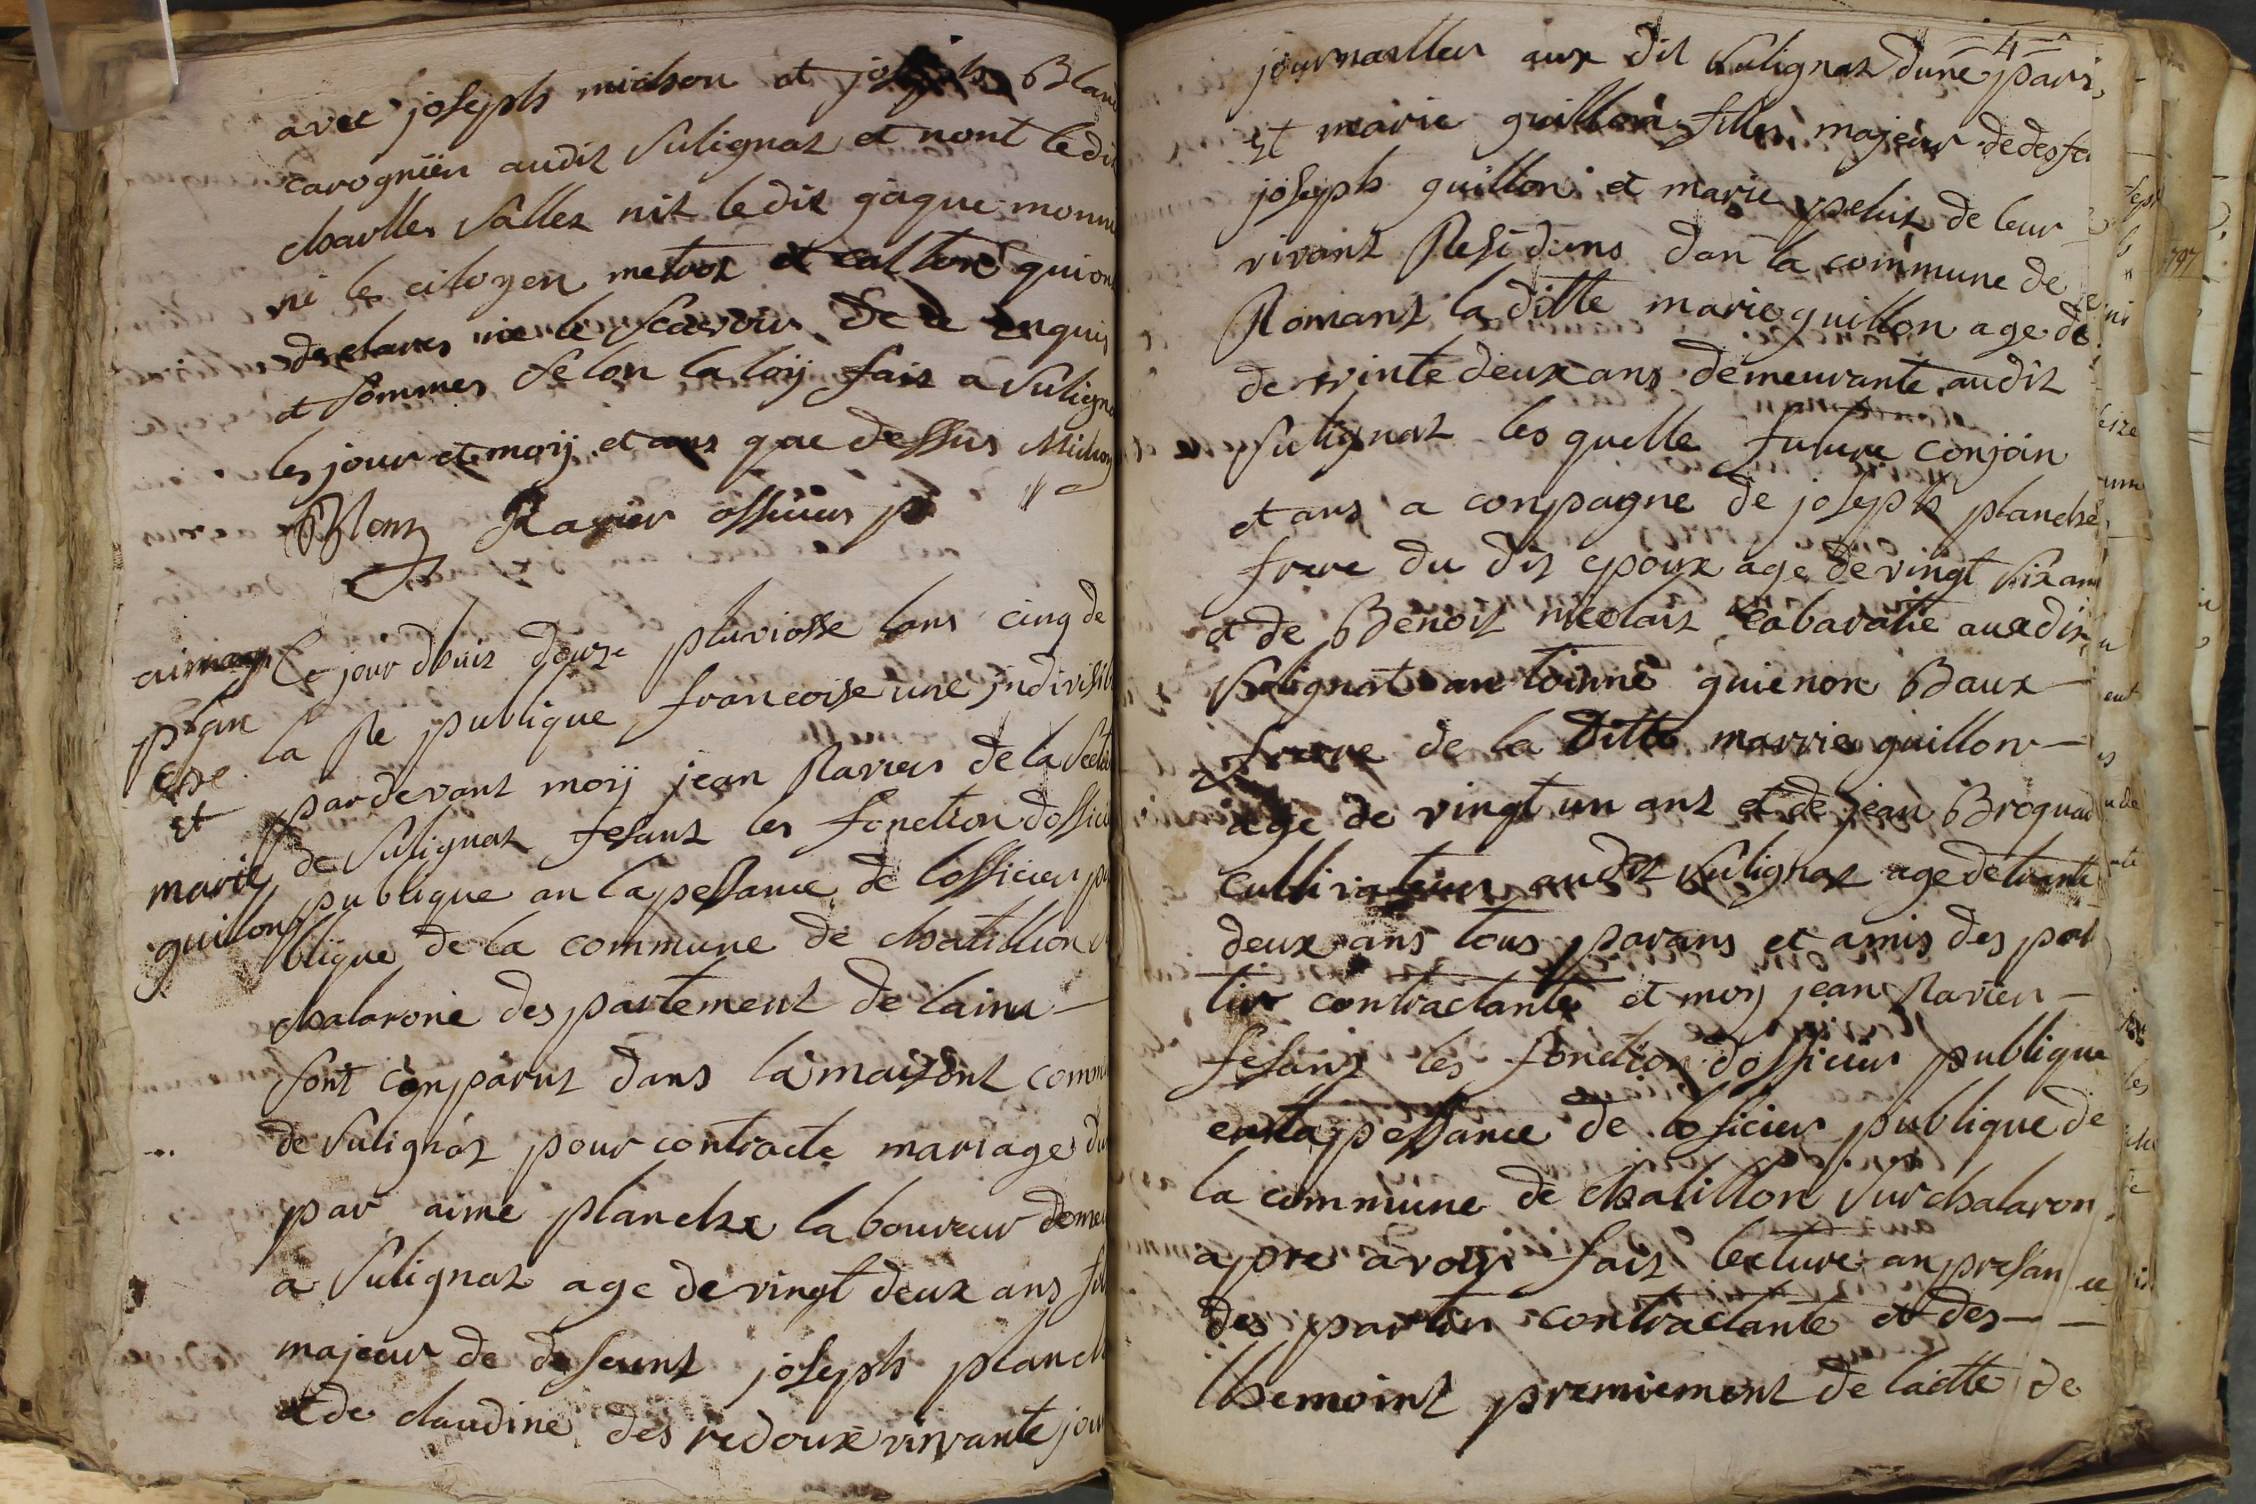 avec joseph michon et joseph Blan
carogniën audit Sulignat et nont ledit
charlles Sallet nit ledit gaque monn
ni le citoyen metrat et qui on
desclares nie le Scavoir de ce Enquis
et Sommes Selon la loÿ fait a Suligna
les jour et moij et ans que dessus Michon
Blanz Ravier officier p
aimee
plan
che
Et
marie
guillon
Ce jour dhuit douze pluviosse lans cinq de
la Re publique francoise une indivisib
pardevant moij jean Raviers de la Section
de Sulignat fesant les fonction doffici
publique an lapessance de lofficier pu
blique de la commune de chatillion
chalarone despartement de lainn —
Sont conparut dans la maisont commu
de Sulignat pour contracte mariages d
par aime planche laboureur demeu
a Sulignat age de vingt deux ans fil
majeur de defeunt joseph planch
et de claudine des redoux vivvante jour
4
journallier aux dit Sulignat dune part,
Et marie guillon filles majeur de desfe
joseph guillon et marie peluz de leur
vivant Residans dan la commune de
Romant la ditte marie guillon age de
de trinte deux ans demeurante audit
Sulignat les quelle future conjoin
et ans a conpagne de joseph planche
frere du dit epoux age de vingt six ans
et de Benoit nicolas cabaratie auxdit
Sulignat antoinne guienon Baux —
frrere de la ditte marrie guillon —
age de vingt un ans et de jean Broquai
cultivateur audit Sulignat age de trante
deux ans tous parans et amis des pat
tier contractante et moy jean Ravier —
fesant les fonction dofficier publique
enlapessance de loficier publique de
la commune de chatillon Sur chalaron
apre avoir fait lecture an presan ce
des partier contractante et des — —
themoint premiement de lactte de